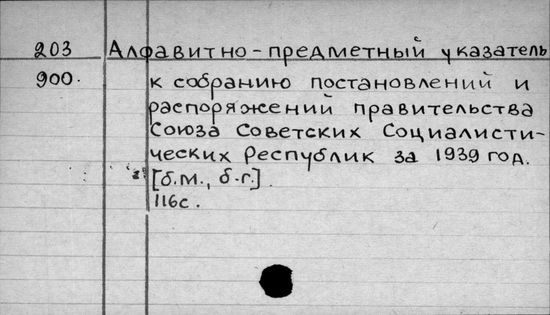 203 Алфавитно-предметный указатель
900. к собранию постановлений и
распоряжений правительства
Союза Советских Социалисти-
ческих Республик за 1939 год.
[б.м., б.г.]
116с.